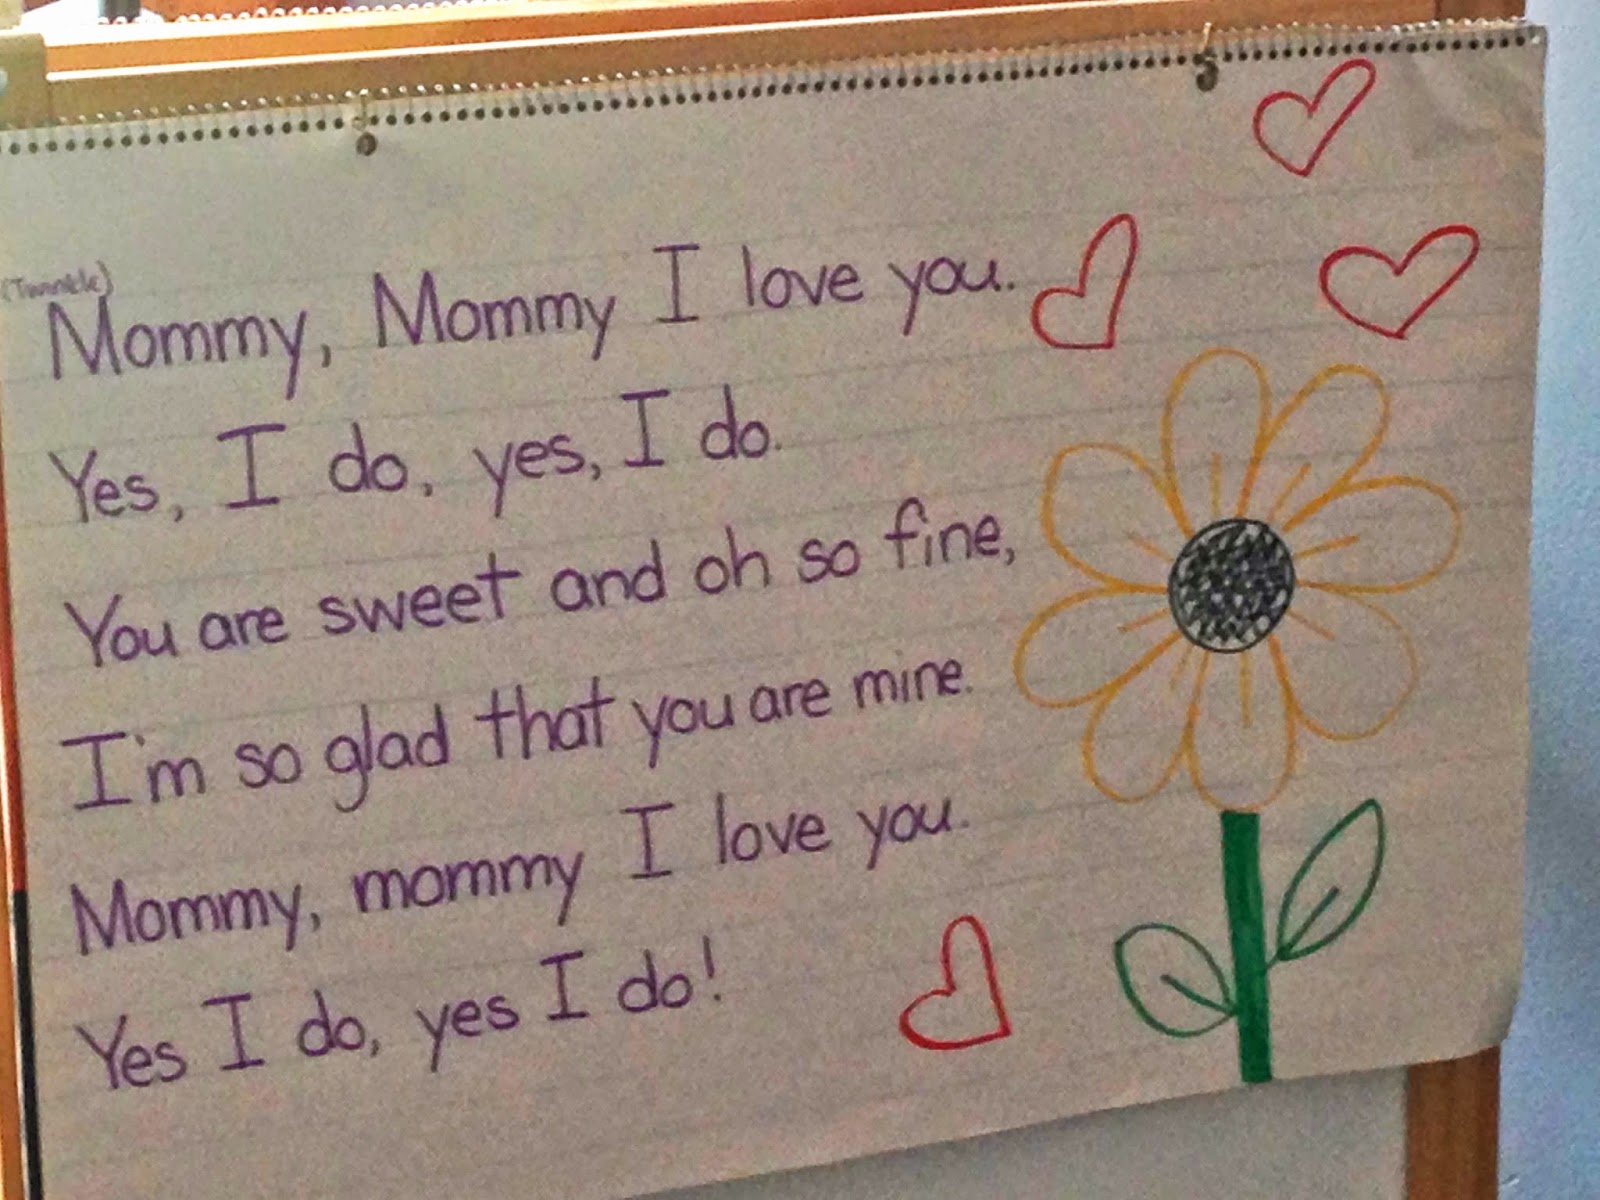 (Twinkle)
Mommy, Mommy I love you.
Yes, I do, yes, I do.
You are sweet and oh so fine,
I'm so glad that you are mine.
Mommy, mommy I love you.
Yes I do, yes I do!